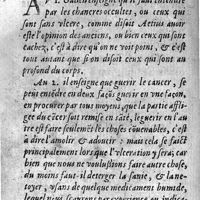 AV 1. Galien enseigne qu'il faut entendre
par les chancres occultes, ou ceux qui
sont sans vlcere, comme disoit Aetius auoir
esté l'opinion des anciens, ou bien ceux qui sont
cachez, c'est à dire qu'on ne voit point, & c'est
tout autant que si on disoit ceux qui sont au
profond du corps.
AV 2. il enseigne que guerir le cancer, se
peut entendre en deux façõs guerir en vne façon,
en procurer par tous moyens, que la partie afflige
du cãcer soit remise en sãté, leguerir en l'autre
est faire seulemẽt les choses cõuenables, c'est
à dire l'amolir & adoucir: mais cela se fait
principalement lors que l'vlceration y sera; car
bien que nous ne voulussions faire autre chose,
du moins faut-il deterger la sanie, & lanettoyer,
vsans de quelque medicament humide,
lequel nous sçaurons par experience ou indica-